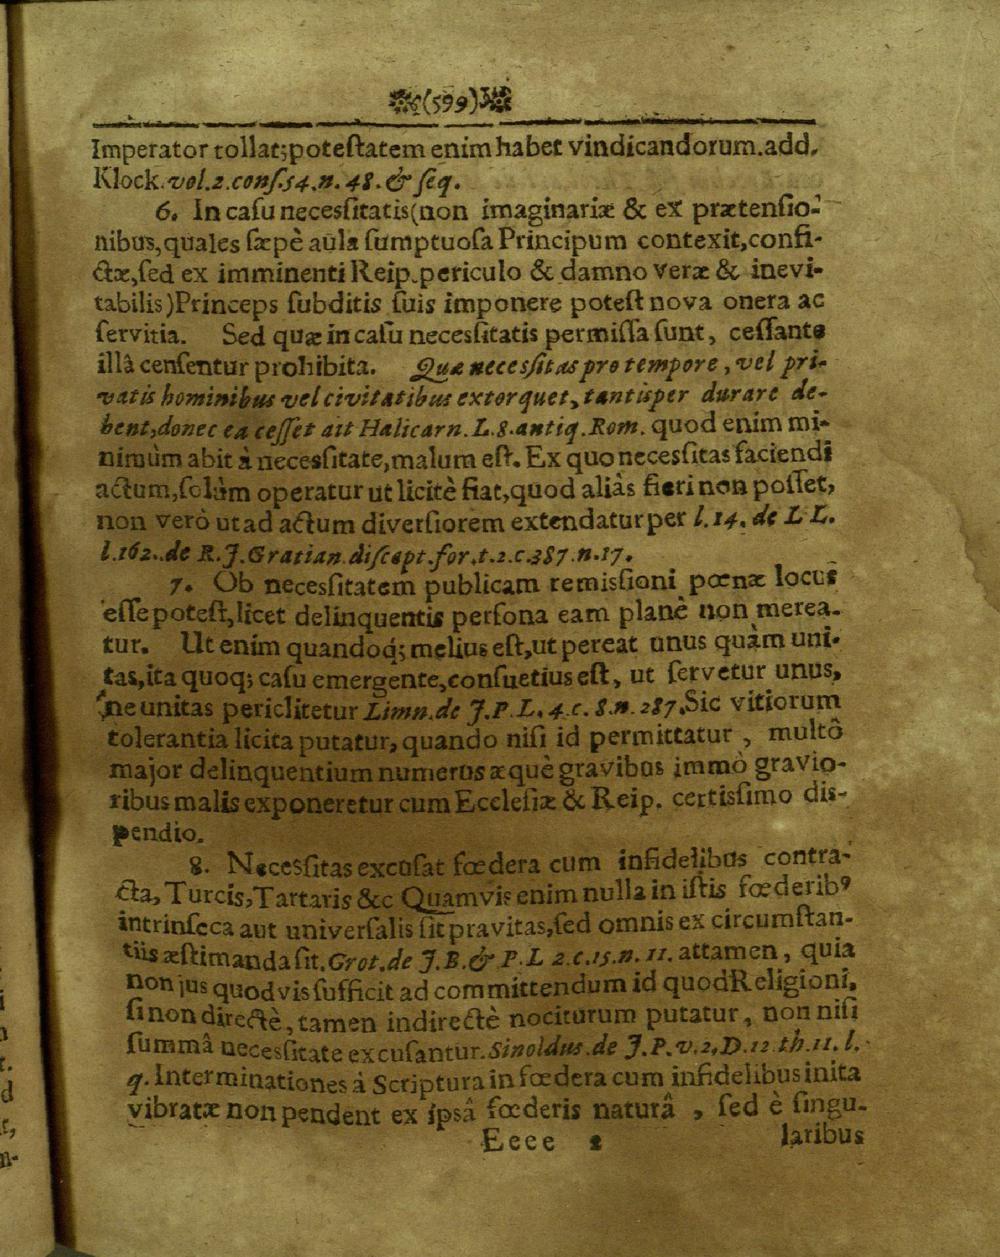 (599)
Imperator tollat; potestatem enim habet vindicandorum. add.
Klock. vol. 2. cons. 54. n. 48. & seq.
6. In casu necessitatis (non imaginariæ & ex prætensio-
nibus, quales sæpè aula sumptuosa Principum contexit, confi-
ctæ, sed ex imminenti Reip. periculo & damno veræ & inevi-
tabilis) Princeps subditis suis imponere potest nova onera ac
servitia. Sed quæ in casu necessitatis permissa sunt, cessante
illâ censentur prohibita. Quæ necessitas pro tempore, vel pri-
vatis hominibus vel civitatibus extorquet, tantisper durare de-
bent, donec ea cesset ait Halicarn. L. 8. antiq. Rom. quod enim mi-
nimùm abit à necessitate, malum est. Ex quo necessitas faciendi
actum, solùm operatur ut licitè fiat, quod aliàs fieri non posset,
non verò ut ad actum diversiorem extendatur per l. 14. de L L.
l. 162. de R. J. Gratian. discept. for. t. 2. c. 387. n. 17.
7. Ob necessitatem publicam remissioni pœnæ locus
esse potest, licet delinquentis persona eam planè non merea-
tur. Ut enim quandoq; melius est, ut pereat unus quàm uni-
tas, ita quoq; casu emergente, consuetius est, ut servetur unus,
ne unitas periclitetur Limn. de J. P. L. 4. c. 8. n. 287. Sic vitiorum
tolerantia licita putatur, quando nisi id permittatur, multò
major delinquentium numerus æquè gravibus immò gravio-
ribus malis exponeretur cum Ecclesiæ & Reip. certissimo dis-
pendio.
8. Necessitas excusat fœdera cum infidelibus contra-
cta, Turcis, Tartaris &c Quamvis enim nulla in istis fœderibꝰ
intrinseca aut universalis sit pravitas, sed omnis ex circumstan-
tiis æstimanda sit. Grot. de J. B. & P. L 2. c. 15. n. 11. attamen, quia
non jus quodvis sufficit ad committendum id quod Religioni,
si non directè, tamen indirectè nociturum putatur, non nisi
summâ necessitate excusantur. Sinoldus. de J. P. v. 2. D. 12 th. 11. l.
q. Interminationes à Scriptura in fœdera cum infidelibus inita
vibratæ non pendent ex ipsâ fœderis naturâ, sed è singu-
Eeee 2 laribus